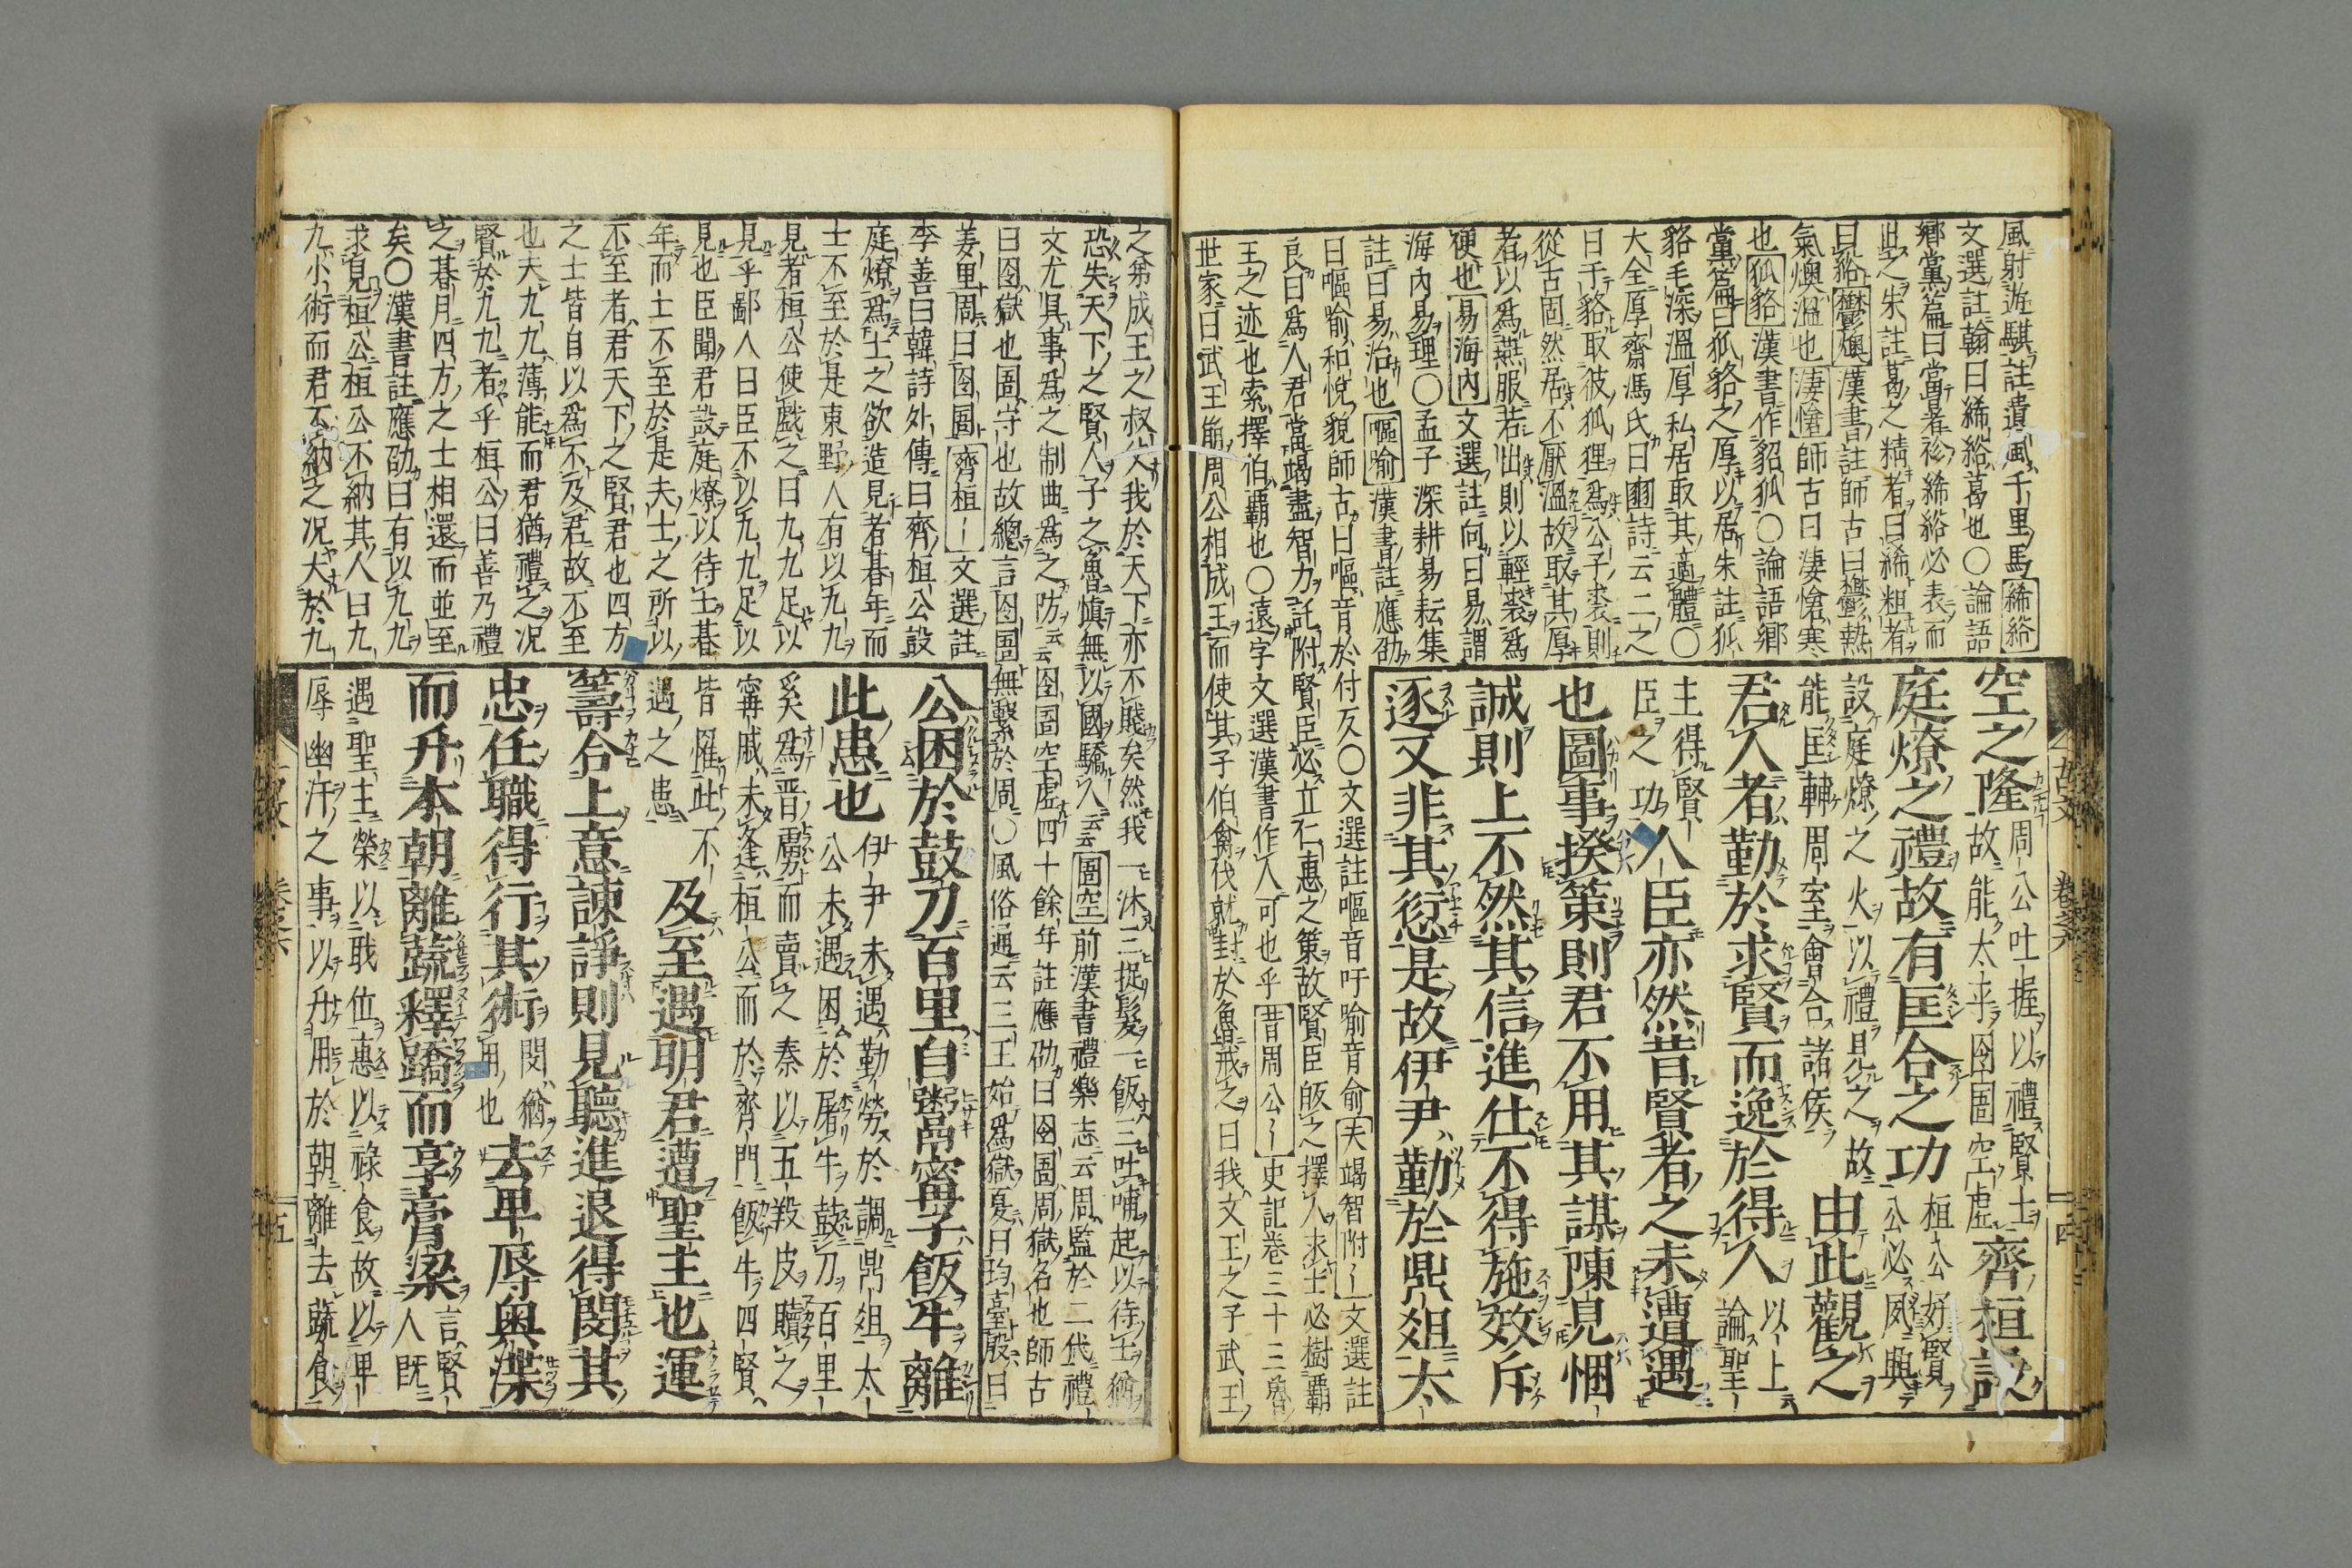 風射遊騏註遺風千里馬絺綌
文選註翰曰絺綌葛也〇論語
鄉黨篇曰當暑袗絺綌必表而
出之朱註葛之精者曰絺粗者
曰綌鬱燠漢書註師古曰鬱熱
氣燠溫也淒愴師古曰淒愴寒
也狐貉漢書作貂狐〇論語鄉
黨篇曰狐貉之厚以居朱註狐
貉毛深溫厚私居取其適體〇
大全厚齋馮氏曰豳詩云二之
日于貉取彼狐狸爲公子裘則
從古固然居不厭溫故取其厚
者以爲燕服若出則以輕裘爲
便也易海內文選註向曰易謂
海內易理〇孟子深耕易耘集
註曰易治也嘔喻漢書註應劭
曰嘔喻和悅貌師古曰嘔音於付反〇文選註嘔音吁喻音俞夫竭智附〡文選註
良曰爲人君當竭盡智力託附賢臣必立仁惠之策故賢臣皈之擇人求士必樹覇
王之迹也索擇伯覇也〇遠字文選漢書作人可也乎昔周公〡史記卷三十三魯
世家曰武王崩周公相成王而使其子伯禽代就封於魯戒之曰我文王之子武王
空之隆周公吐握以禮賢士故能太平囹圄空虛齊桓設
庭燎之禮故有匡合之功桓公好賢公必夙興
設庭燎之火以禮見之故能匡輔周室會合諸侯由此觀之
君人者勤於求賢而逸於得人以上論聖
主得賢臣之功人臣亦然昔賢者之未遭遇
也圖事揆策則君不用其謀陳見悃
誠則上不然其信進仕不得施效斥
逐又非其愆是故伊尹勤於鼎俎太
古文 卷之六 十四
之弟成王之叔父我於天下亦不賤矣然我一沐三捉髮一飯三吐哺起以待士猶
恐失天下之賢人子之魯愼無以國驕人云云圄空前漢書禮樂志云周監於二代禮
文尤具事爲之制曲爲之防云云囹圄空虛四十餘年註應劭曰囹圄周獄名也師古
曰囹獄也圄守也故總言囹圄無繫於周〇風俗通云三王始爲獄夏曰均臺殷曰
羑里周曰囹圄齊桓〡文選註
李善曰韓詩外傳曰齊桓公設
庭燎爲士之欲造見者朞年而
士不至於是東野人有以九九
見者桓公使戲之曰九九足以
見乎鄙人曰臣不以九九足以
見也臣聞君設庭燎以待士朞
年而士不至於是夫士之所以
不至者君天下之賢君也四方
之士皆自以爲不及君故不至
也夫九九薄能而君猶禮之况
賢於九九者乎桓公曰善乃禮
之朞月四方之士相還而並至
矣〇漢書註應劭曰有以九九
求見桓公桓公不納其人曰九
九小術而君不納之况大於九
公困於鼓刀百里自鬻甯子飯牛離
此患也伊尹未遇勤勞於調鼎俎太公未遇困於屠牛鼓刀百里
奚爲晋虜而賣之秦以五羖皮贖之甯戚未逢桓公而於齊門飯牛四賢
皆罹此不遇之患及至遇明君遭聖主也運
籌合上意諫諍則見聽進退得關其
忠任職得行其術關猶用也去卑辱奧渫
而升本朝離蔬釋蹻而享膏粱言賢人既
遇聖主榮以職位惠以祿食故以卑
辱幽汙之事以升用於朝離去蔬食